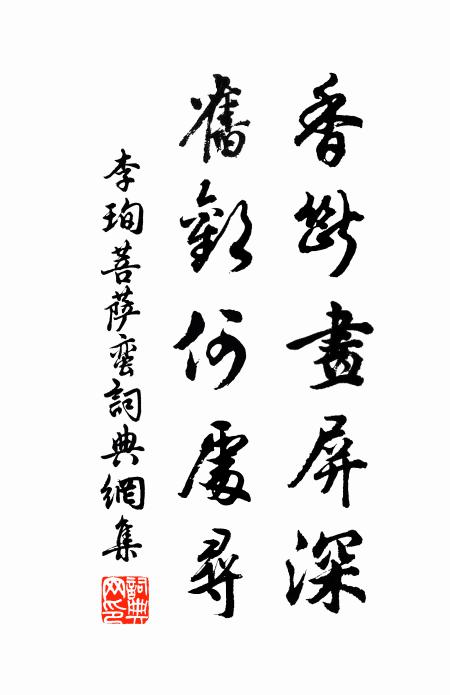 香斷畫屏深
舊歡何處尋
李珣菩薩蠻詞典網集
詞典網印